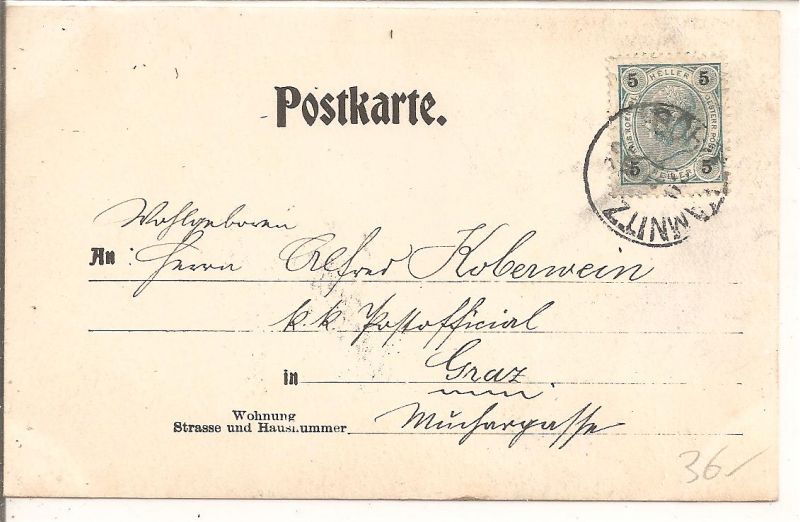 Postkarte.
5 HELLER 5
5 HELLER 5
Wohlgeboren
An Herrn Alfred Koberwein
k. k. Postofficial
in Graz
Wohnung
Strasse und Hausnummer Muchargasse
36